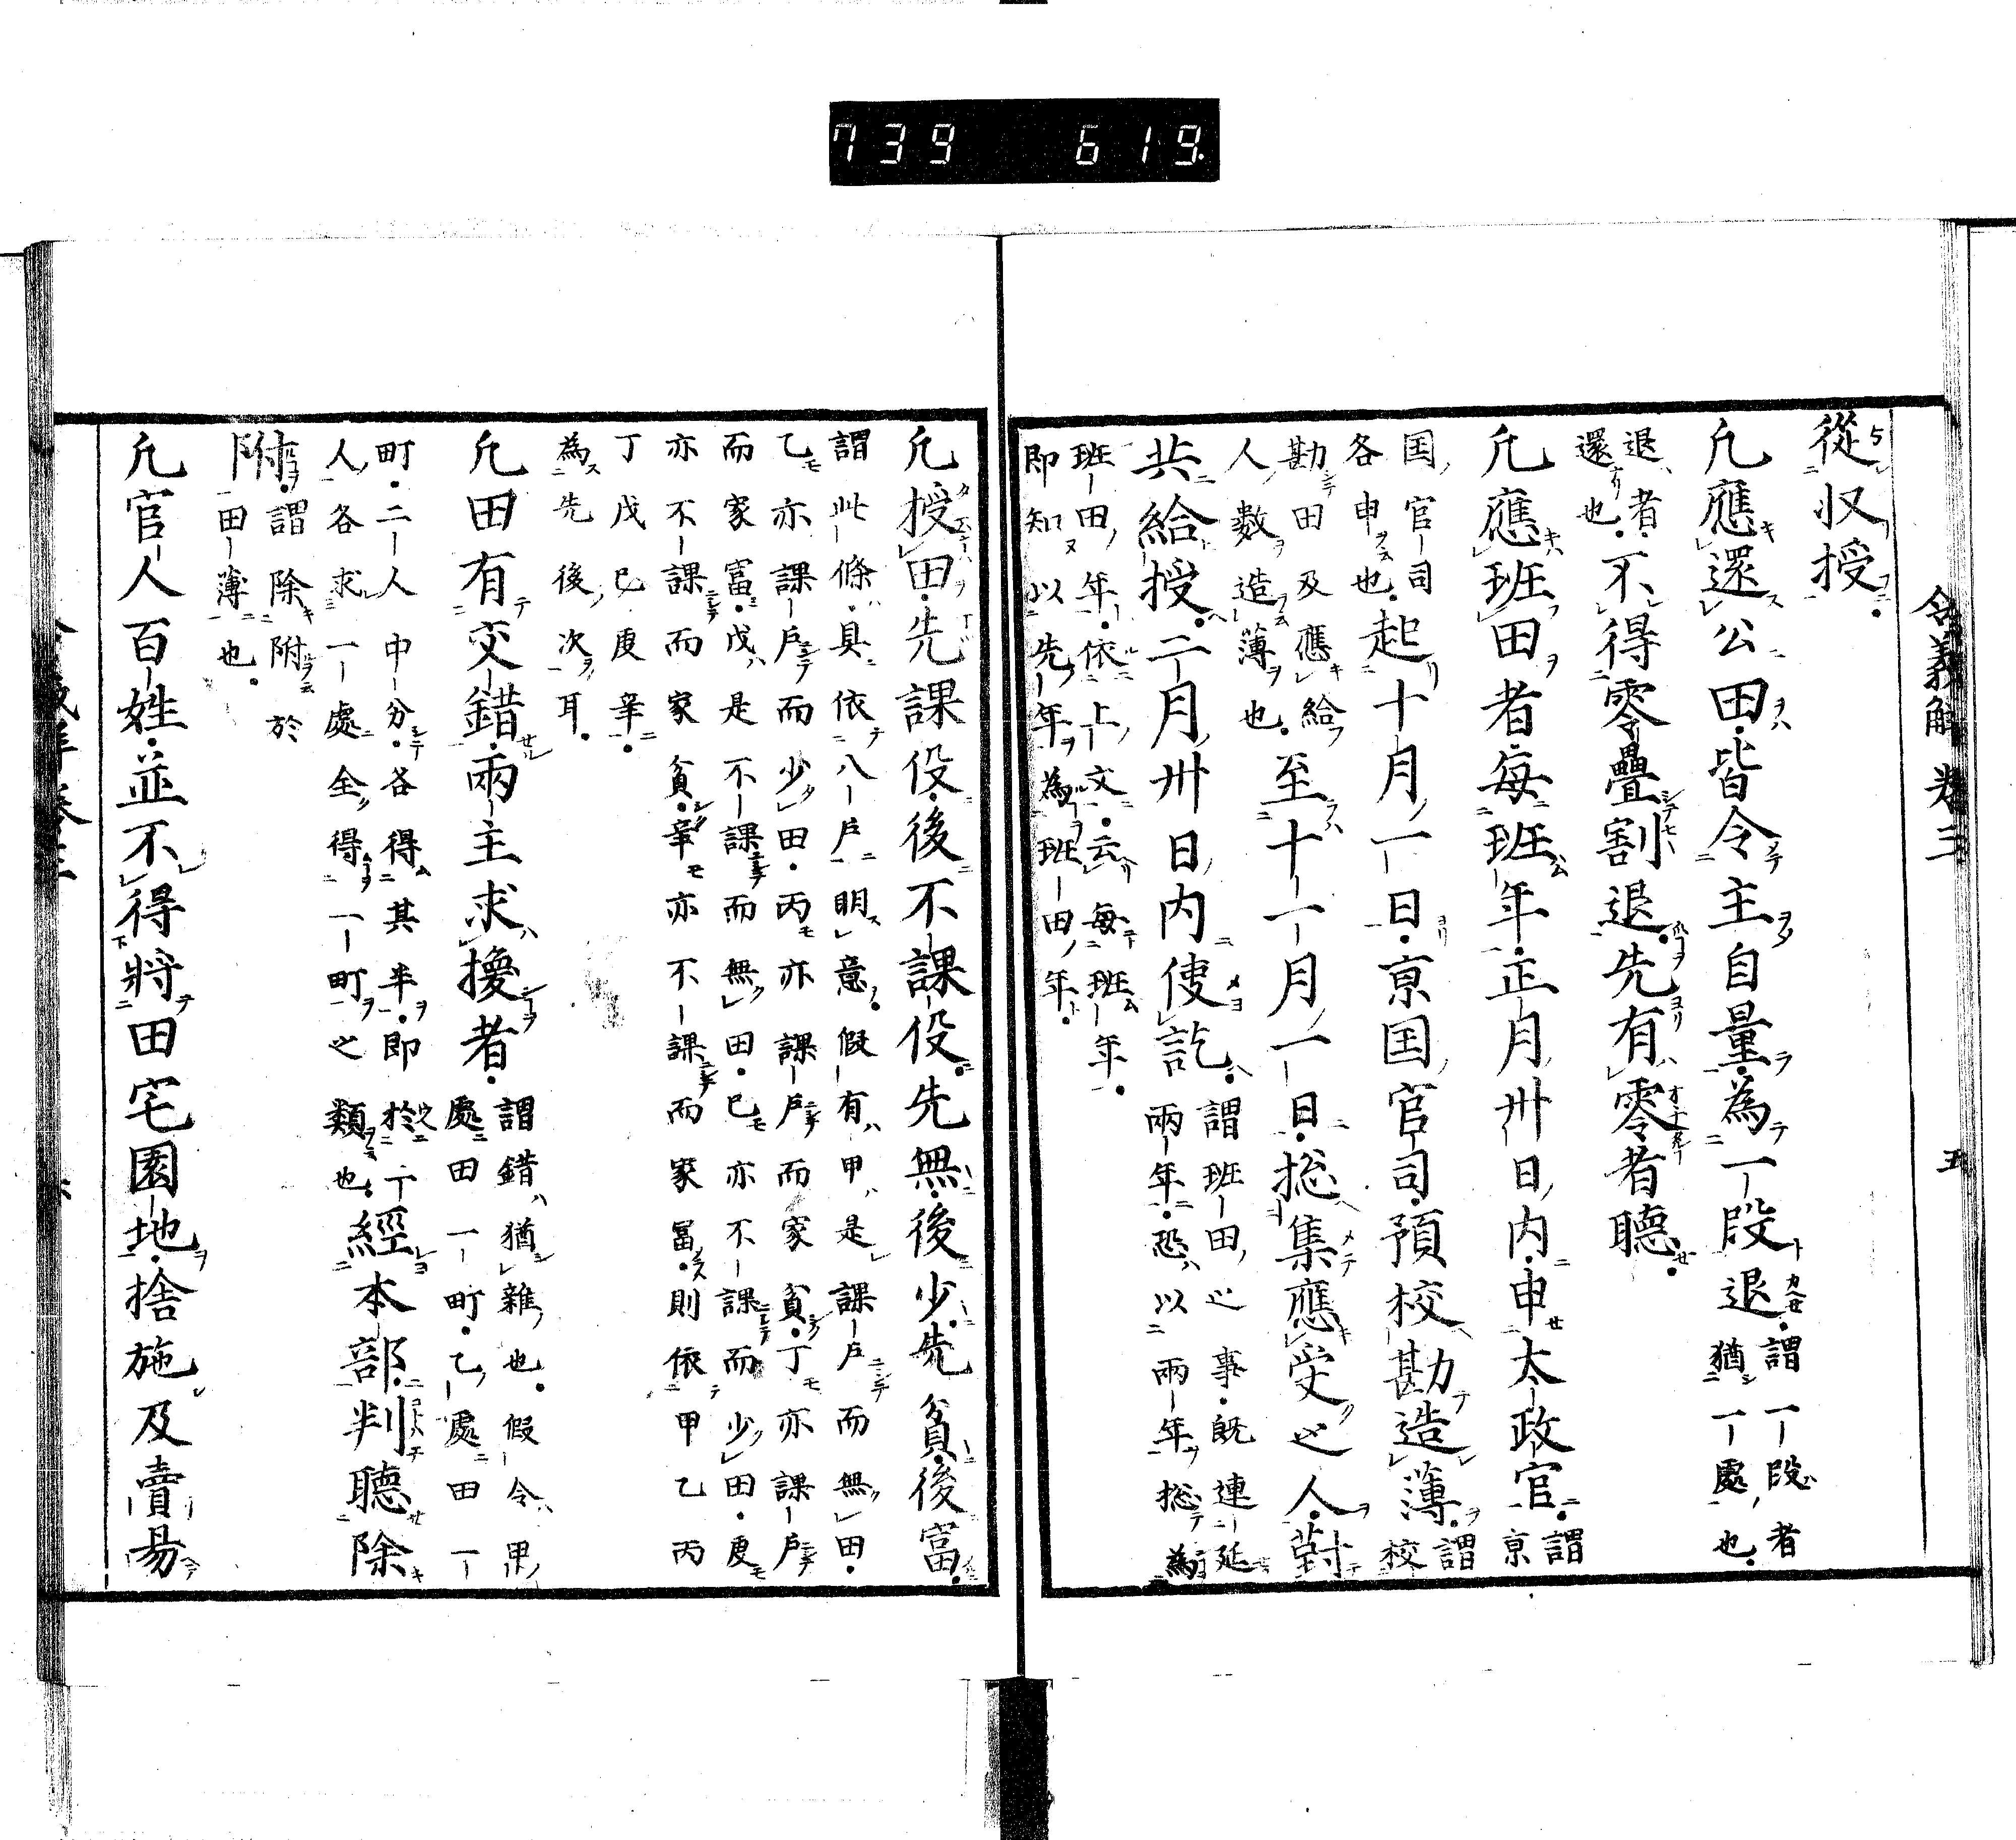 739 619
令義解卷三 五
從収授
凡應還公田皆令主自量為一段退謂一段者猶一處也
退者不得零疊割退先有零者聽
還也
凡應班田者每班年正月卅日内申太政官謂京
国官司
各申也起十月一日京国官司預校勘造薄謂校
勘田及應給
人數造薄也至十一月一日総集應受之人對
共給授二月卅日内使訖謂班田之事既連延
兩年恐以兩年総為
班田年依上文云每班年
即知以先年為班田年
凡授田先課役後不課役先無後少先貧後富
謂此條具依八戶明意假有甲是課戶而無田
乙亦課戶而少田丙亦課戶而家貧丁亦課戶
而家富戊是不課而無田已亦不課而少田庚
亦不課而家貧辛亦不課而家冨則依甲乙丙
丁戊已庚辛
為先後次耳
凡田有交錯兩主求換者謂錯猶雜也假令甲
處田一町乙處田一
町二人中分各得其半即於一
人各求一處全得一町之類也經本部判聽除
附謂除附於
田薄也
凡官人百姓並不得將田宅園地捨施及賣易